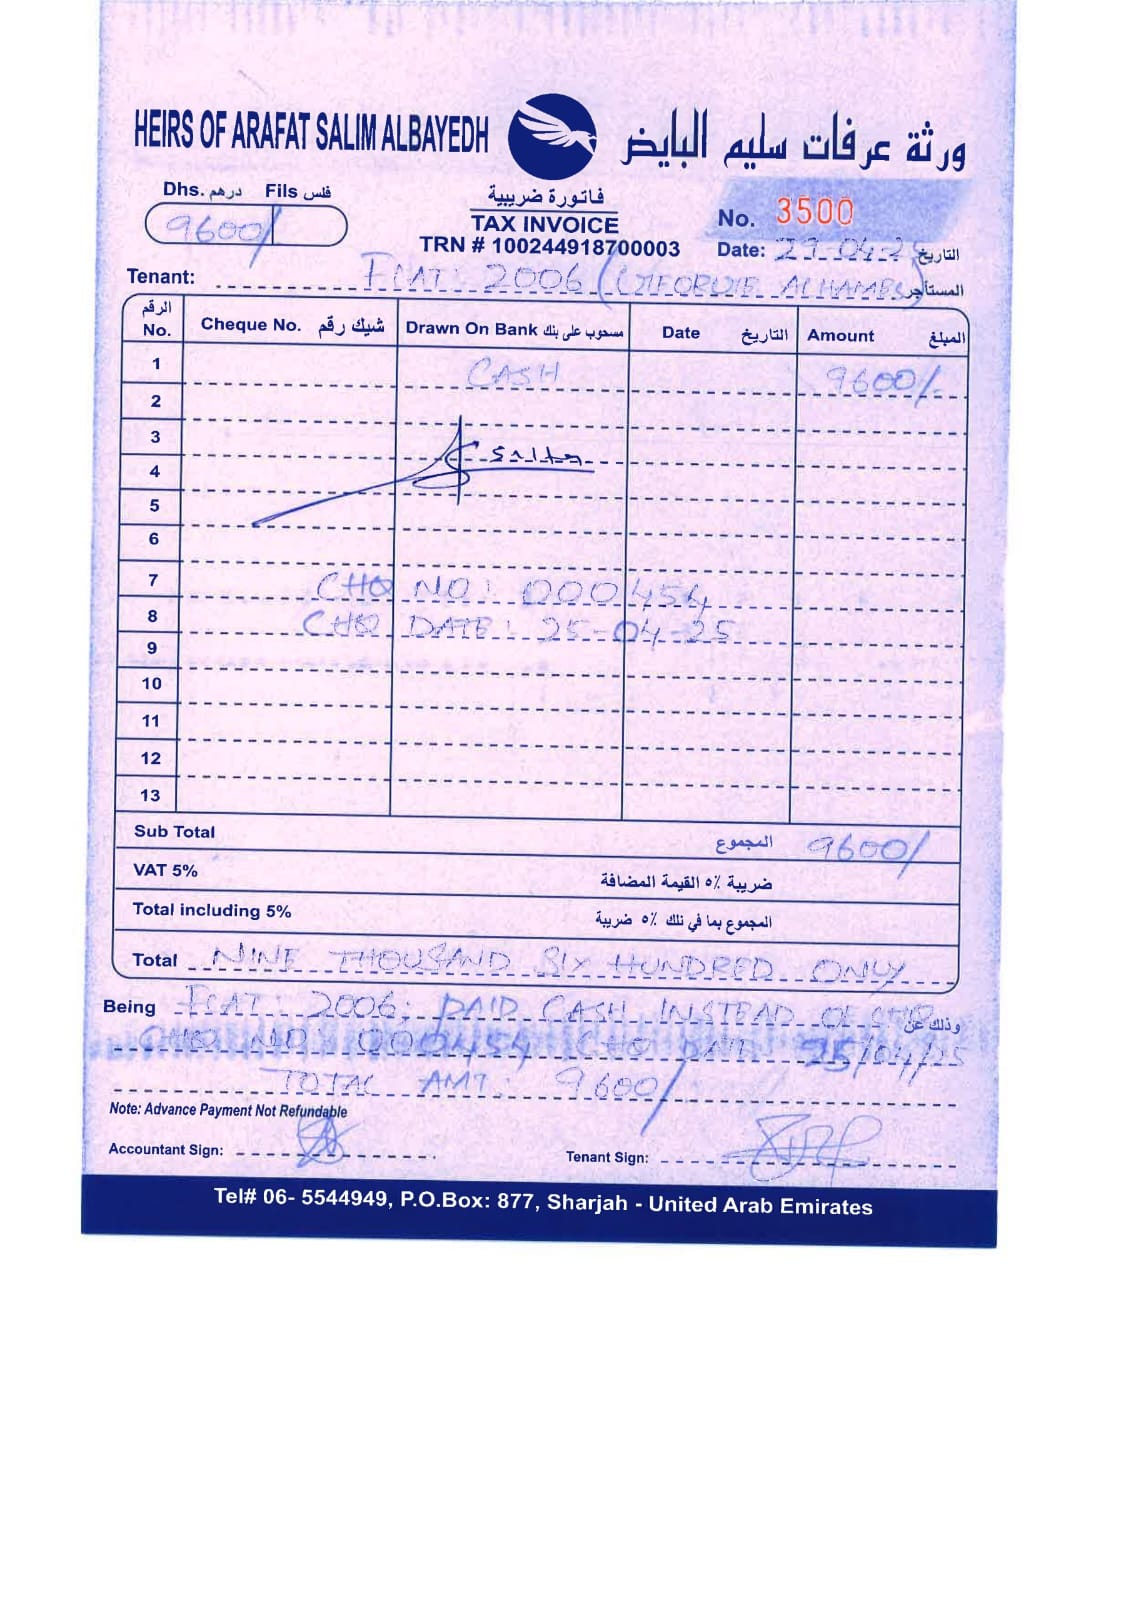 HEIRS OF ARAFAT SALIM ALBAYEDH ورثة عرفات سليم البايض
Dhs. درهم Fils فلس
9600/
فاتورة ضريبية
TAX INVOICE
TRN # 100244918700003
No. 3500
Date: التاريخ
Tenant: FLAT: 2006 ( المستأجر
الرقم No. Cheque No. شيك رقم Drawn On Bank مسحوب على بنك Date التاريخ Amount المبلغ
1 CASH 9600/-
2
3
4
5
6
7 CHQ NO: 000454
8 CHQ DATE: 25-04-25
9
10
11
12
13
Sub Total المجموع 9600/
VAT 5% ضريبة ٥٪ القيمة المضافة
Total including 5% المجموع بما في ذلك ٥٪ ضريبة
Total NINE THOUSAND SIX HUNDRED ONLY
Being FLAT: 2006; PAID CASH INSTEAD OF وذلك عن
CHQ NO 000454 CHQ 25/04/25
TOTAL AMT: 9600/
Note: Advance Payment Not Refundable
Accountant Sign: Tenant Sign:
Tel# 06- 5544949, P.O.Box: 877, Sharjah - United Arab Emirates